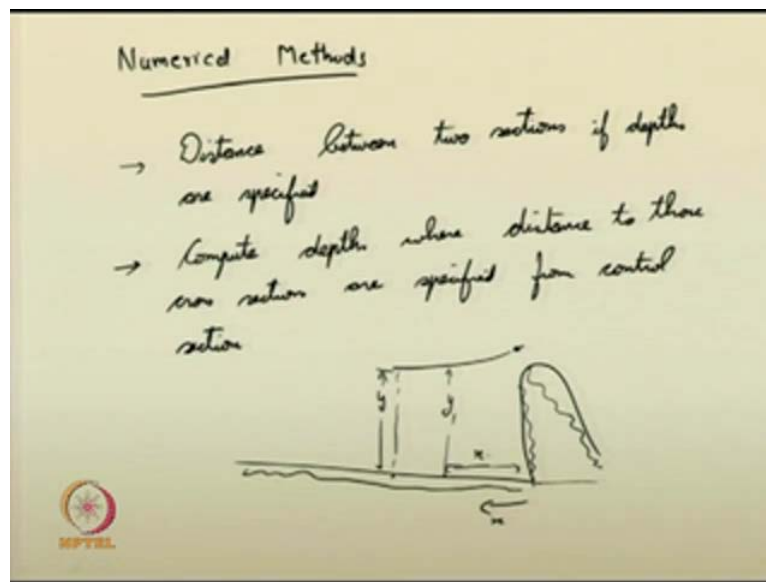 Numerical Methods
→ Distance between two sections if depths
are specified
→ Compute depths where distance to those
cross sections are specified from control
section
y
y₁
x
x
NPTEL